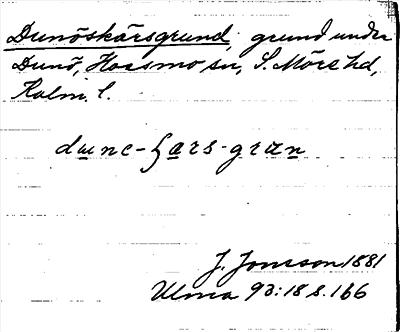 Dunöskärsgrund, grund under
Dunö, Hossmo sn, S. Möre hd,
Kalm. l.
dune-ʃars-gran
J. Jonsson 1881
Ulma 93:18 s. 166